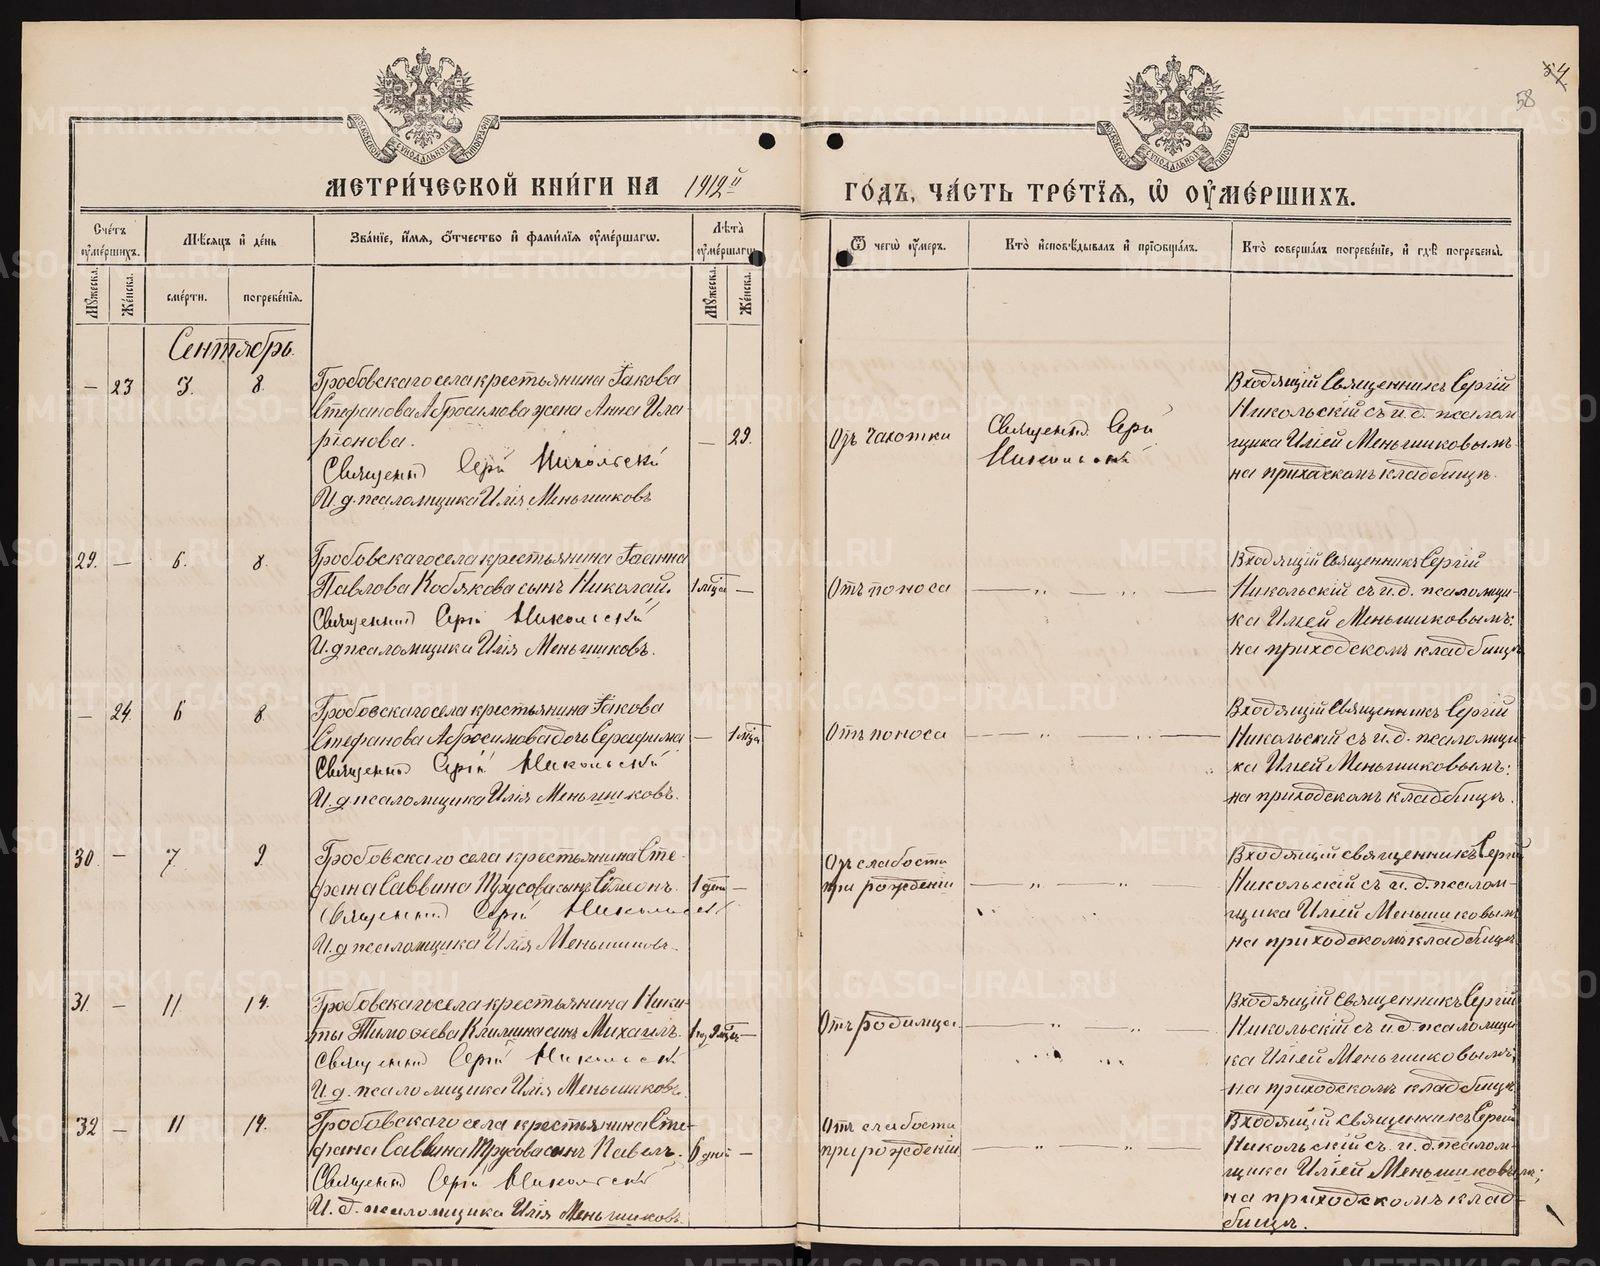 54
58
МЕТРИ́ЧЕСКОЙ КНИ́ГИ НА 1912й
ГО́ДЪ, ЧА́СТЬ ТРЕ́ТЇѦ, Ѡ҆ ОУ҆МЕ́РШИХЪ.
Сче́тъ оу҆ме́ршихъ.
Мѣ́сяцъ и҆ де́нь
Зва́нїе, и҆́мѧ, ѻ҆́тчество и҆ фами́лїѧ оу҆ме́ршагѡ.
Лѣ́та оу҆ме́ршагѡ
Ѿ чегѡ̀ оу҆́меръ.
Кто̀ и҆сповѣ́дывалъ и҆ прїѡбща́лъ.
Кто̀ соверша́лъ погребе́нїе, и҆ гдѣ̀ погребены̀.
Мꙋ́жеска.
Же́нска.
сме́рти.
погребе́нїѧ.
Мꙋ́жеска.
Же́нска.
Сентябрь.
— 23 3. 8. Гробовскаго села крестьянина Іакова
Стефанова Абросимова жена Анна Ила-
ріонова. — 29.
Священник Сергій Никольскій
И. д. псаломщика Илія Меньшиковъ
Отъ чахотки
Священник Сергій
Никольскій
Входящій Священникъ Сергій
Никольскій съ и. д. псалом
щика Иліей Меньшиковымъ
на приходскомъ кладбищѣ.
29. — 6. 8. Гробовскаго села крестьянина Іоанна
Павлова Кобякова сынъ Николай. 1 мѣсц —
Священник Сергій Никольскій
И. д. псаломщика Илія Меньшиковъ.
Отъ поноса — „ — „ —
Входящій Священникъ Сергій
Никольскій съ и. д. псаломщи-
ка Иліей Меньшиковымъ:
на приходскомъ кладбищѣ
— 24. 6 8 Гробовскаго села крестьянина Іакова
Стефанова Абросимова дочь Серафима — 1 мѣсца
Священник Сергій Никольскій
И. д. псаломщика Илія Меньшиковъ.
Отъ поноса — „ — „ —
Входящій Священникъ Сергій
Никольскій съ и. д. псаломщи-
ка Иліей Меньшиковымъ:
на приходскомъ кладбищѣ.
30. — 7. 9. Гробовскаго села крестьянина Сте-
фана Саввина Трусова сынъ Сѷмеонъ. 1 день —
Священник Сергій Никольскій
И. д. псаломщика Илія Меньшиковъ.
Отъ слабости
при рожденіи — „ — „ —
Входящій священникъ Сергій
Никольскій съ и. д. псалом-
щика Иліей Меньшиковымъ
на приходскомъ кладбищѣ
31. — 11 14. Гробовскаго села крестьянина Ники-
ты Тимоѳеева Климина сынъ Михаилъ. 1 год 9 мѣсц. —
Священник Сергій Никольскій
И. д. псаломщика Илія Меньшиковъ.
Отъ родимца. — „ — „ —
Входящій Священникъ Сергій
Никольскій съ и. д. псаломщи
ка Иліей Меньшиковымъ;
на приходскомъ кладбищѣ
32 — 11 14. Гробовскаго села крестьянина Сте-
фана Саввина Трусова сынъ Павелъ. 6 дней —
Священник Сергій Никольскій
И. д. псаломщика Илія Меньшиковъ.
Отъ слабости
при рожденіи — „ — „ —
Входящій священникъ Сергій
Никольскій съ и. д. псалом-
щика Иліей Меньшиковымъ;
на приходскомъ клад-
бищѣ.
METRIKI.GASO-URAL.RU